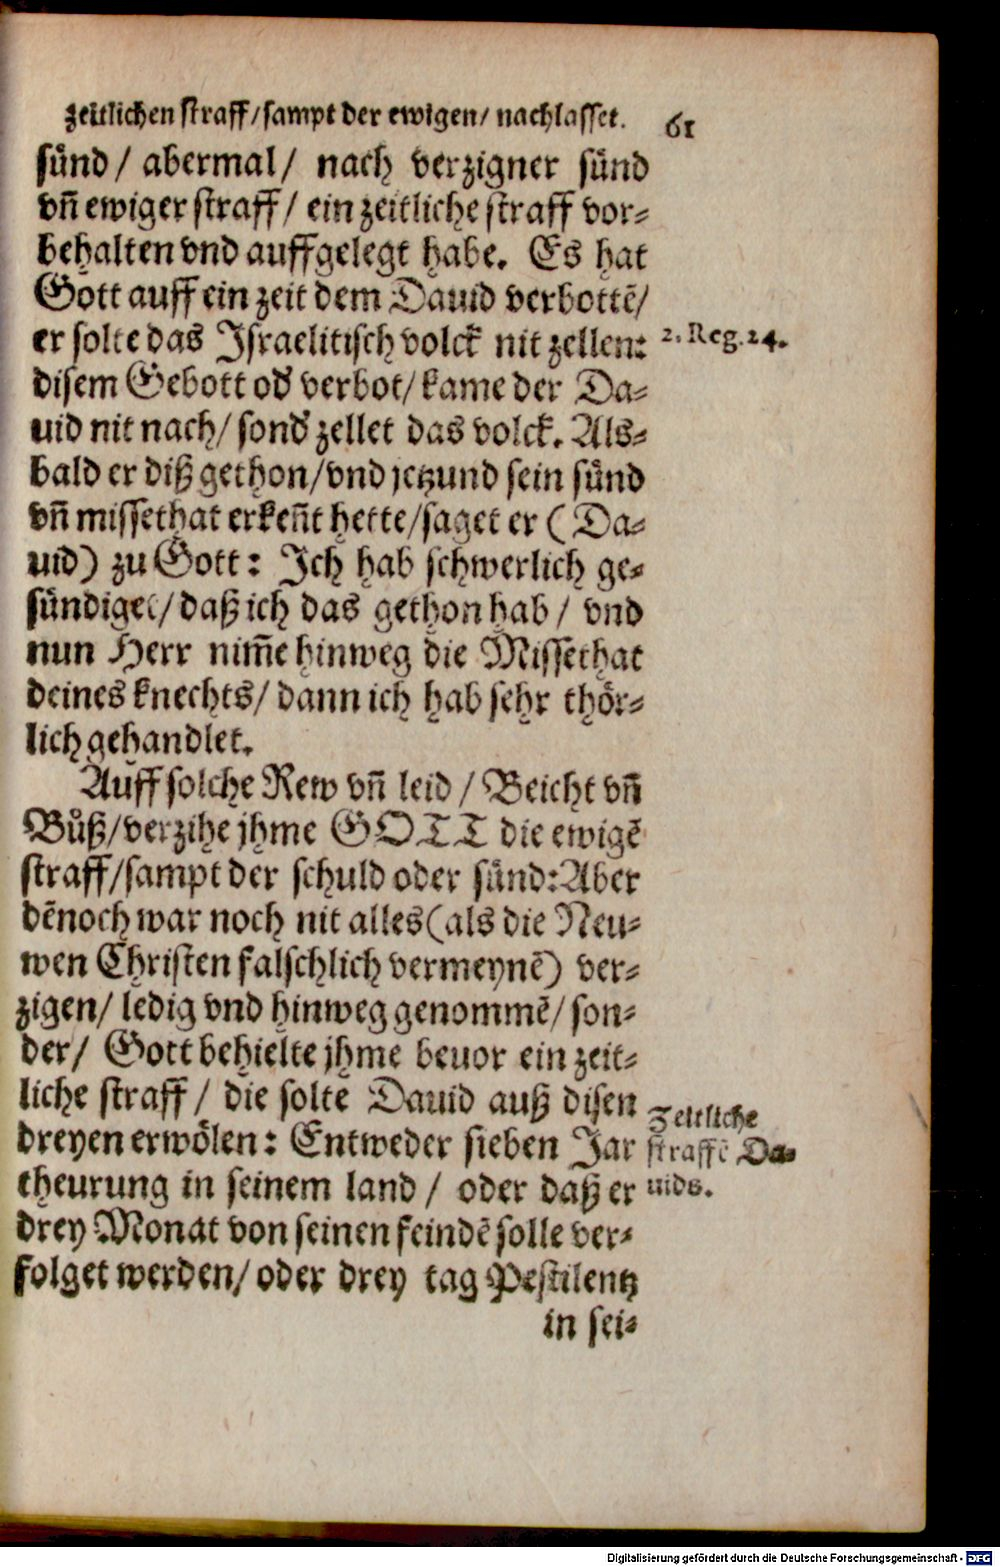 zeitlichen straff/sampt der ewigen/ nachlasset. 61
sünd/ abermal/ nach verzigner sünd
vñ ewiger straff/ ein zeitliche straff vor⸗
behalten vnd auffgelegt habe. Es hat
Gott auff ein zeit dem Dauid verbottẽ/
er solte das Israelitisch volck nit zellen:
2. Reg. 24.
disem Gebott od' verbot/ kame der Da⸗
uid nit nach/ sond' zellet das volck. Als⸗
bald er diß gethon/vnd jetzund sein sünd
vñ missethat erkeñt hette/saget er (Da⸗
uid) zu Gott: Ich hab schwerlich ge⸗
sündiget/ daß ich das gethon hab/ vnd
nun Herr nim̃e hinweg die Missethat
deines knechts/ dann ich hab sehr thör⸗
lich gehandlet.
Auff solche Rew vñ leid/ Beicht vñ
Bůß/verzihe jhme GOTT die ewigẽ
straff/sampt der schuld oder sünd: Aber
dẽnoch war noch nit alles (als die Neu⸗
wen Christen falschlich vermeynẽ) ver⸗
zigen/ ledig vnd hinweg genommẽ/ son⸗
der/ Gott behielte jhme beuor ein zeit⸗
liche straff/ die solte Dauid auß disen
dreyen erwölen: Entweder sieben Jar
Zeitliche
straffẽ Da⸗
uids.
theurung in seinem land/ oder daß er
drey Monat von seinen feindẽ solle ver⸗
folget werden/ oder drey tag Pestilentz
in sei⸗
Digitalisierung gefördert durch die Deutsche Forschungsgemeinschaft - DFG